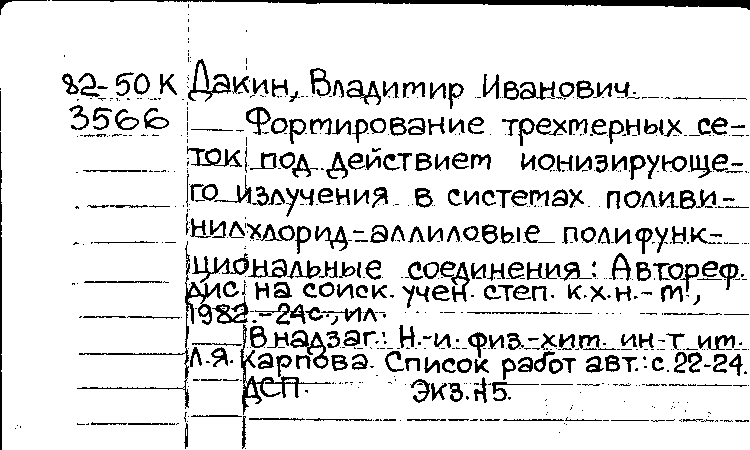 82-50К Дакин, Владимир Иванович.
3566 Формирование трехмерных се-
ток под действием ионизирующе-
го излучения в системах поливи-
нилхлорид-аллиловые полифунк-
циональные соединения: Автореф.
дис. на соиск. учен. степ. к.х.н.- м.,
1982.- 24с., ил.
В надзаг.: Н.-и. физ.-хим. ин-т им.
Л.Я. Карпова. Список работ авт.: с.22-24.
ДСП. Экз.№5.